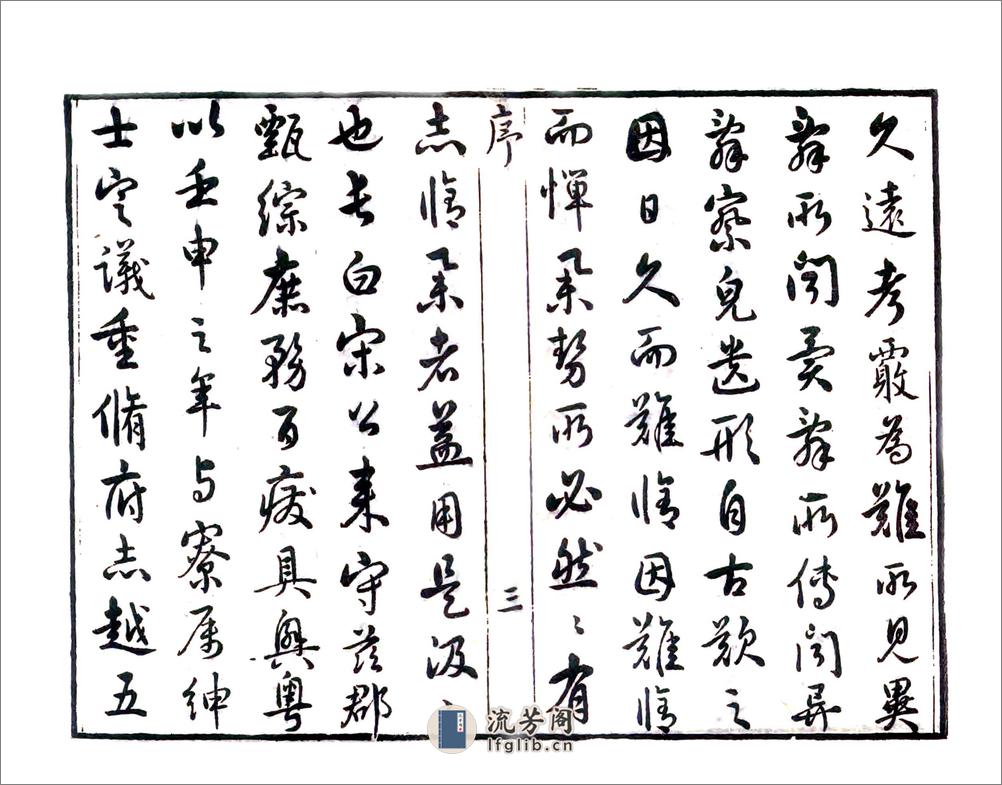 久遠考覈為難所見異
辭所聞異辭所傳聞异
辭察皃遺形自古歎之
因日久而難脩因難脩
而憚舉勢所必然〻有
序 三
志脩舉者盖用是汲〻
也長白宋公来守茲郡
甄綜庶務百廢具興粵
以壬申之年与寮属紳
士定議重脩府志越五
流芳阁
lfglib.cn